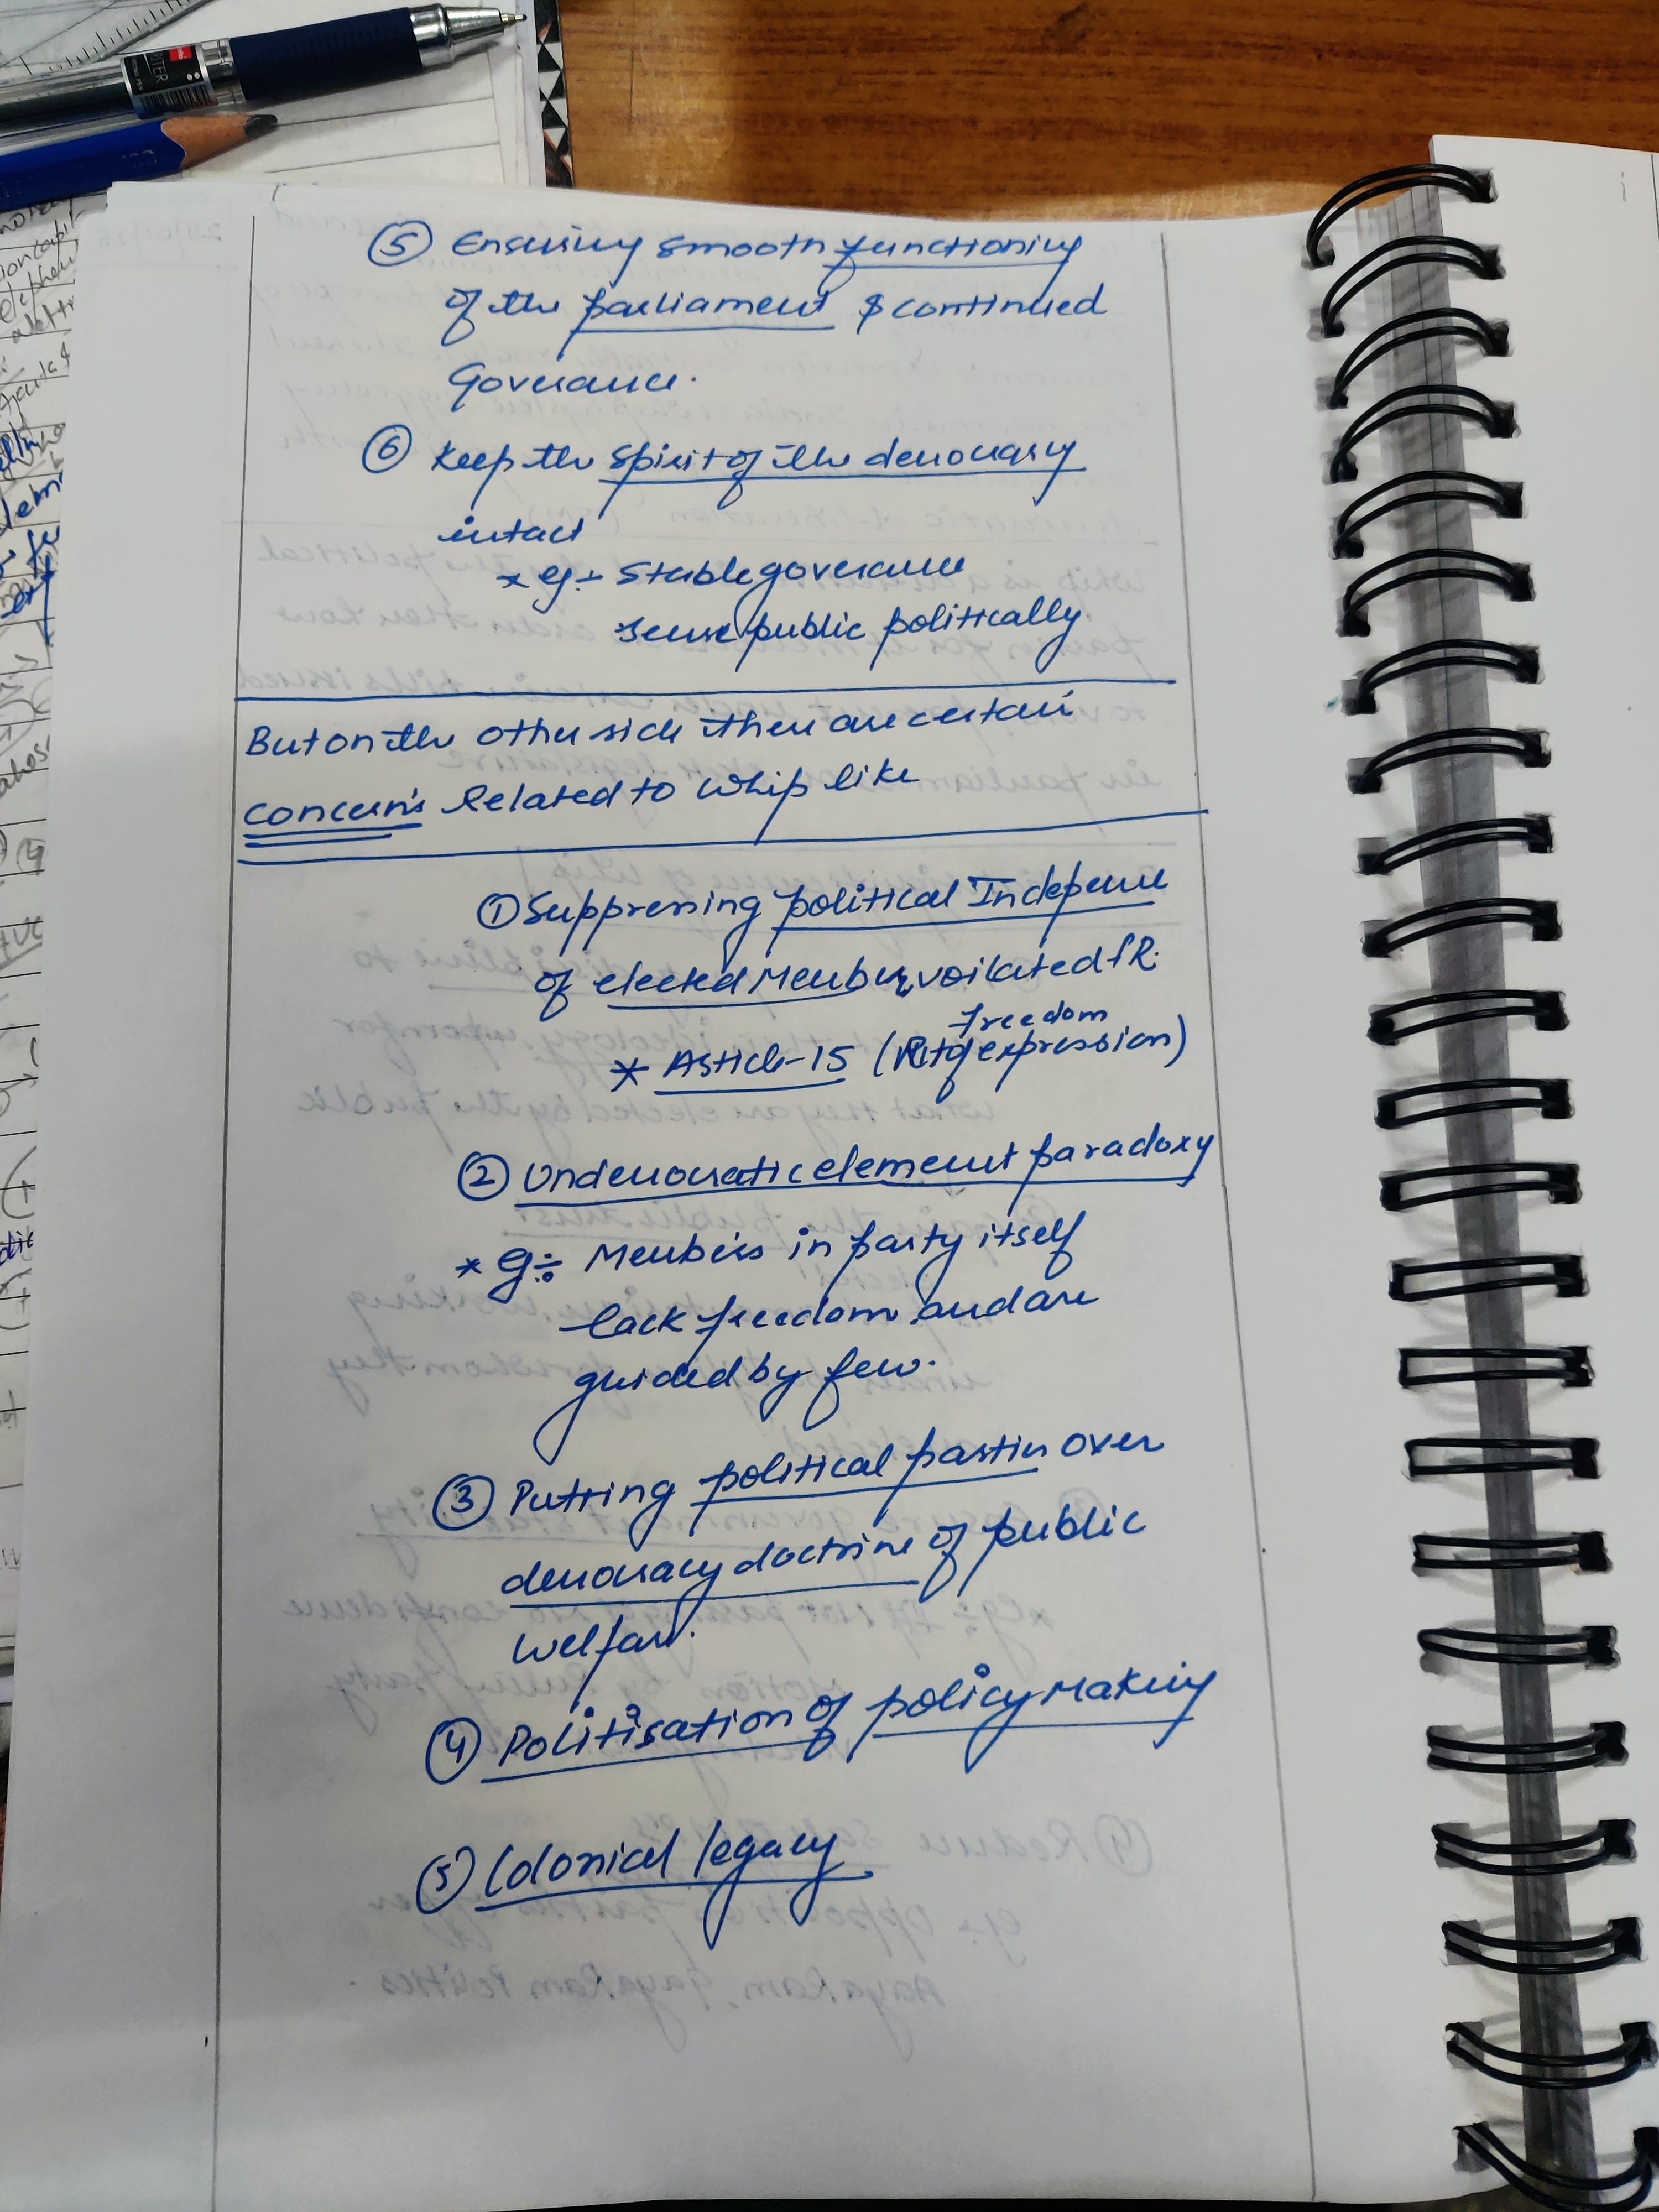 ⑤ Ensuring smooth functioning
of the parliament & continued
Goverance.
⑥ Keep the spirit of the democracy
intact
* eg:- Stable goverance
public politically
But on the other side there are certain
concerns Related to Whip like
① Suppressing political Indepence
of elected Members, voilated FR.
freedom
* Article-15 (Rt of expression)
② Undemocratic element paradoxy
* eg:- Members in party itself
lack freedom and are
guided by few.
③ Putting political parties over
democracy doctrine of public
welfare.
④ Politisation of policy Making
⑤ Colonical legacy